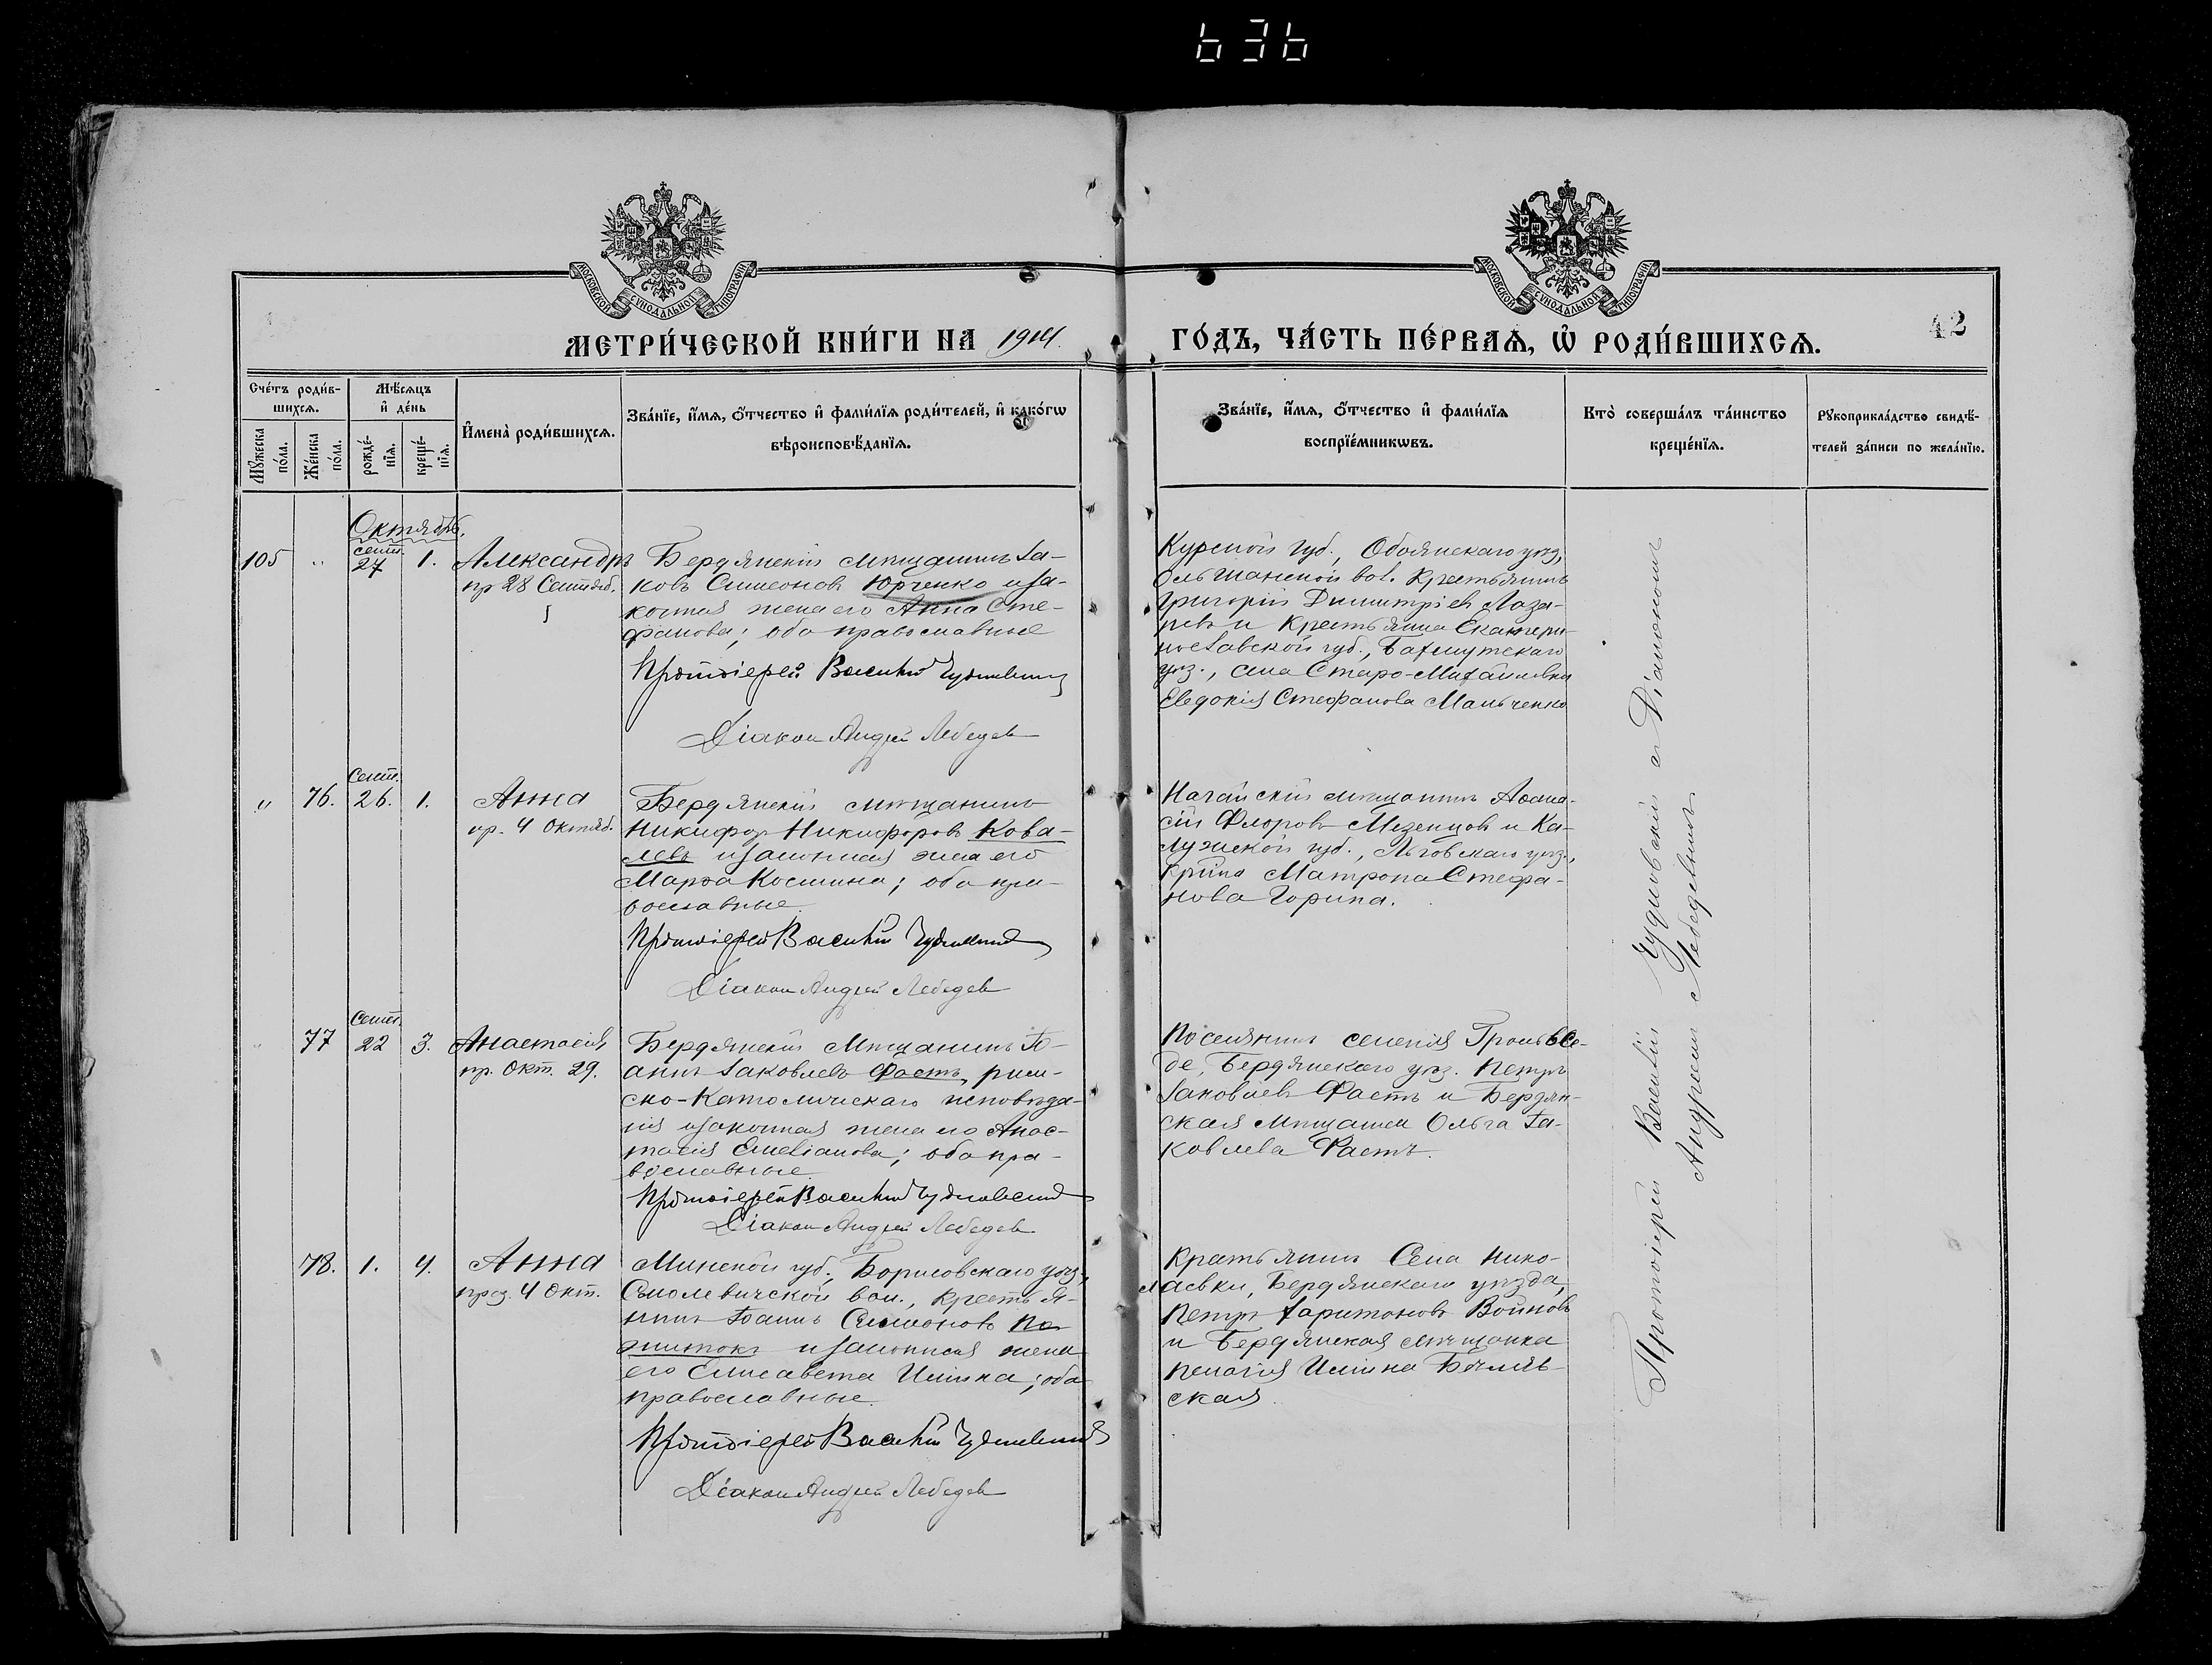 636
МОСКОВСКОЙ СѴНОДАЛЬНОЙ ТИПОГРАФІИ
МОСКОВСКОЙ СѴНОДАЛЬНОЙ ТИПОГРАФІИ
МЕТРИ́ЧЕСКОЙ КНИ́ГИ НА 1914 ГО́ДЪ, ЧА́СТЬ ПЕ́РВАѦ, Ѡ҆ РОДИ́ВШИХСѦ.
42
Сче́тъ роди́в-
шихсѧ.
Мѣ́сѧцъ
и҆ де́нь
Мꙋ́жеска по́ла.
Же́нска по́ла.
рожде́-
нїѧ.
креще́-
нїѧ.
И҆мена̀ роди́вшихсѧ.
Зва́нїе, и҆́мѧ, ѻ҆́тчество и҆ фами́лїѧ роди́телей, и҆ како́гѡ
вѣроисповѣ́данїѧ.
Зва́нїе, и҆́мѧ, ѻ҆́тчество и҆ фами́лїѧ
воспрїе́мникѡвъ.
Кто̀ соверша́лъ та́инство
креще́нїѧ.
Рꙋкоприкла́дство свидѣ́-
телей за́писи по жела́нїю.
Октябрь.
105 " сент. 27 1. Александръ
пр 28 Сентяб.
Бердянскій мѣщанинъ Іа-
ковъ Симеоновъ Юрченко и за-
конная жена его Анна Сте-
фанова; оба православные
Протоіерей Василій Чудновскій
Діаконъ Андрей Лебедевъ
Курской губ., Обоянскаго уѣз.,
Ольшанской вол. крестьянинъ
Григорій Димитріевъ Лаза-
ревъ и крестьянка Екатери-
нославской губ., Бахмутскаго
уѣз., села Старо-Михайловки
Евдокія Стефанова Мальченко
" 76. Сент. 26. 1. Анна
пр. 4 Октяб.
Бердянскій мѣщанинъ
Никифоръ Никифоровъ Кова-
левъ и законная жена его
Марѳа Космина; оба пра-
вославные.
Протоіерей Василій Чудновскій
Діаконъ Андрей Лебедевъ
Ногайскій мѣщанинъ Аѳана-
сій Флоровъ Мезенцовъ и Ка-
лужской губ., Льговскаго уѣз.,
Матрона Стефа-
нова Горина.
" 77 Сент. 22 3. Анастасія
пр. Окт. 29.
Бердянскій Мѣщанинъ Іо-
аннъ Іаковлевъ Фастъ, рим-
ско-католическаго исповѣда-
нія и законная жена его Анас-
тасія Емеліанова; оба пра-
вославные
Протоіерей Василій Чудновскій
Діаконъ Андрей Лебедевъ
Поселянинъ селенія
Бердянскаго уѣз. Петръ
Іаковлевъ Фастъ и Бердян-
ская мѣщанка Ольга Іа-
ковлева Фастъ.
78. 1. 4. Анна
празд. 4 Окт.
Минской губ., Борисовскаго уѣз.,
Смолевичской вол., крестья-
нинъ Іоаннъ Симеоновъ По-
житокъ и законная жена
его Елисавета Иліина; оба
православные.
Протоіерей Василій Чудновскій
Діаконъ Андрей Лебедевъ
Крестьянинъ Села Нико-
лаевки, Бердянскаго уѣзда,
Петръ Харитоновъ Войновъ
и Бердянская мѣщанка
Пелагія Иліина
ская.
Протоіерей Василій Чудновскій съ Діакономъ
Андреемъ Лебедевымъ